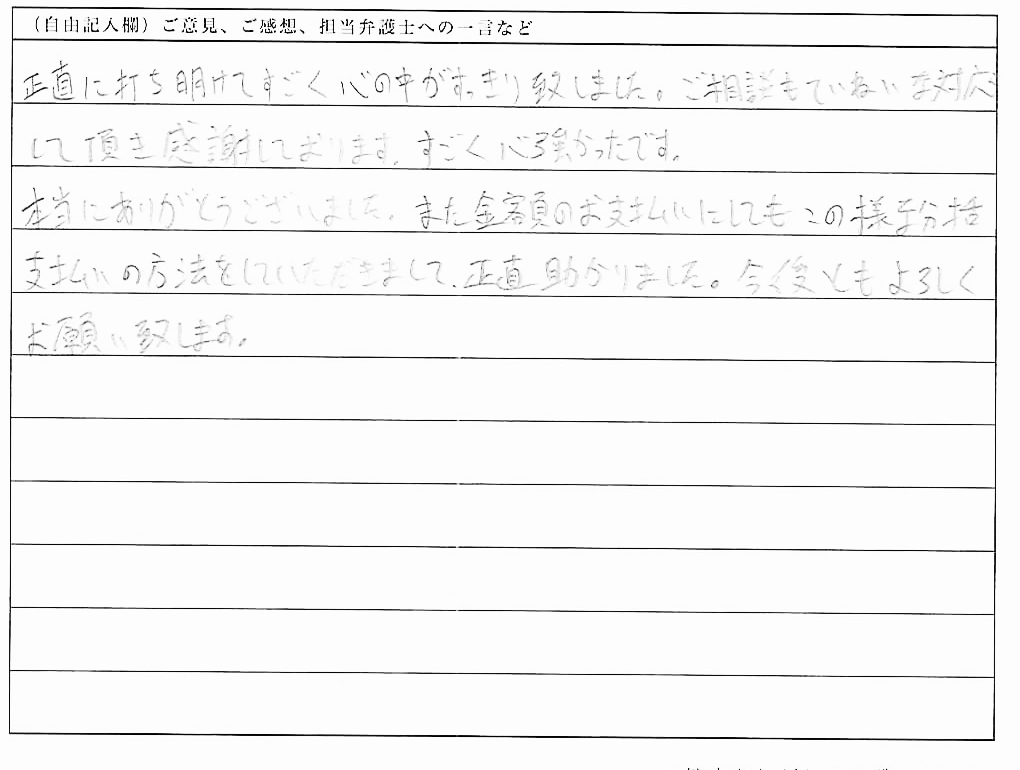 （自由記入欄）ご意見、ご感想、担当弁護士への一言など
正直に打ち明けてすごく心の中がすっきり致しました。ご相談もていねいな対応
して頂き感謝しております。すごく心強かったです。
本当にありがとうございました。また金額のお支払いにしてもこの様な分括
支払いの方法をしていただきまして、正直助かりました。今後ともよろしく
お願い致します。